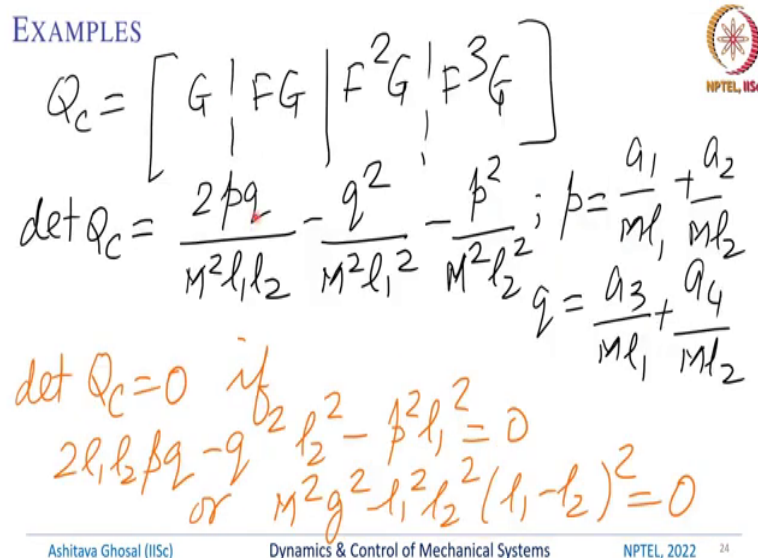 EXAMPLES
NPTEL, IISc
Q_c = [ G ¦ FG | F²G ¦ F³G ]
det Q_c = 2pq/(M²l₁l₂) − q²/(M²l₁²) − p²/(M²l₂²) ; p = a₁/(Ml₁) + a₂/(Ml₂)
q = a₃/(Ml₁) + a₄/(Ml₂)
det Q_c = 0 if
2l₁l₂pq − q²l₂² − p²l₁² = 0
or M²g²l₁²l₂²(l₁−l₂)² = 0
Ashitava Ghosal (IISc) Dynamics & Control of Mechanical Systems NPTEL, 2022 24